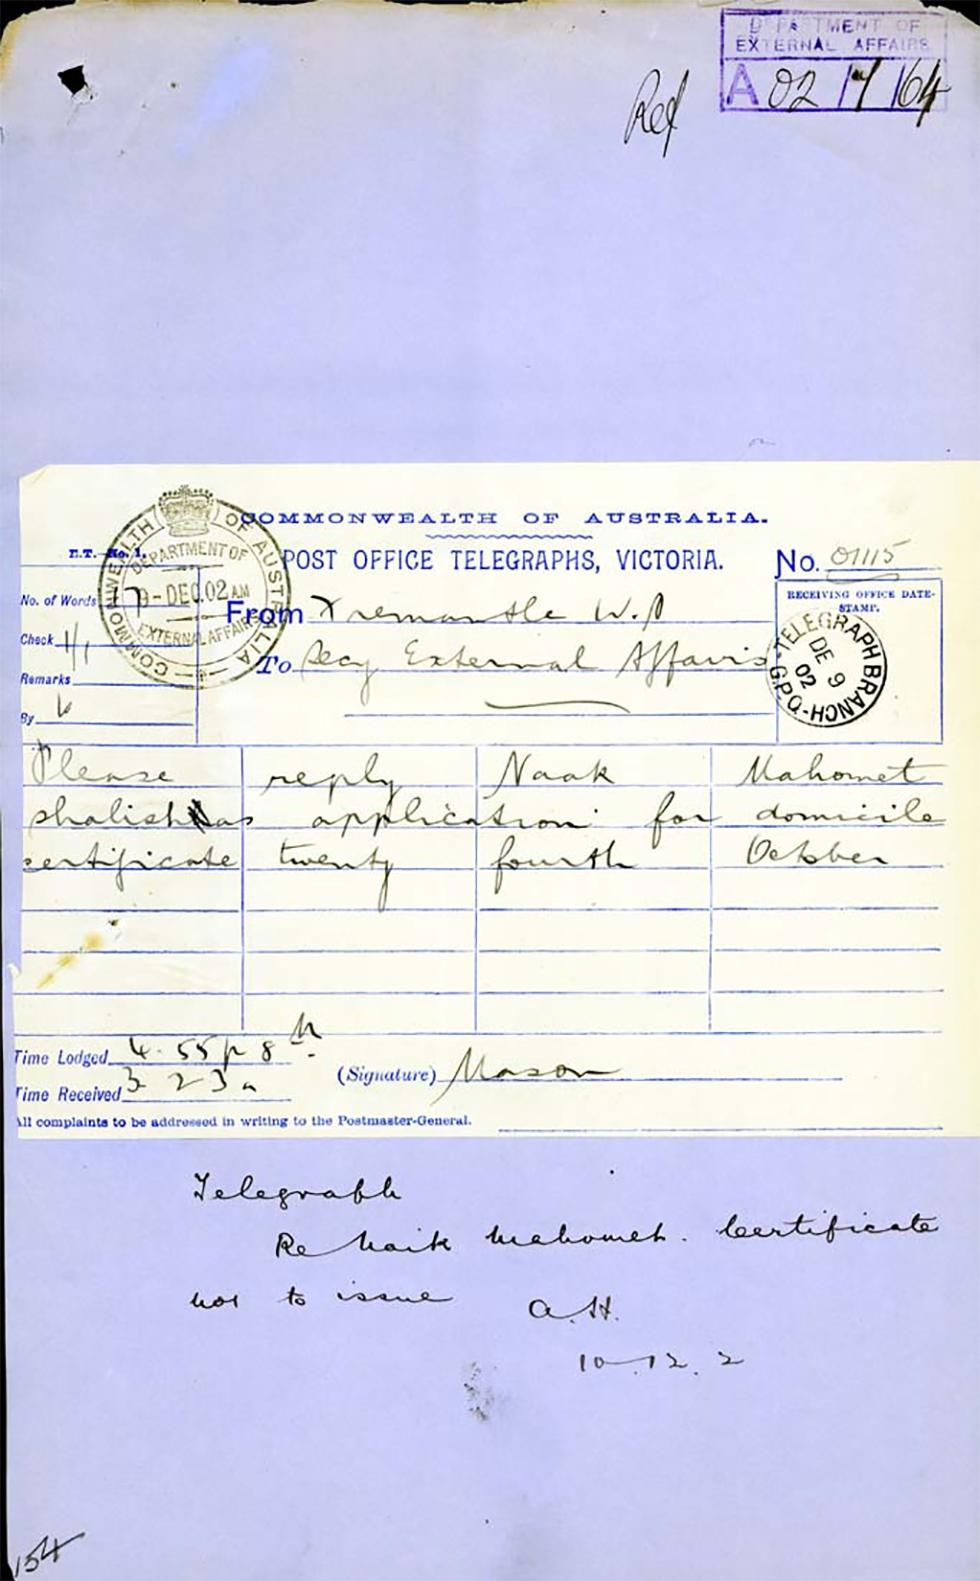 DEPARTMENT OF
EXTERNAL AFFAIRS
A 02 / 7 / 64
Ref
COMMONWEALTH OF AUSTRALIA.
E.T.—No. 1.
POST OFFICE TELEGRAPHS, VICTORIA.
No. 01115
COMMONWEALTH OF AUSTRALIA
DEPARTMENT OF
9-DEC.02 AM
EXTERNAL AFFAIRS
RECEIVING OFFICE DATE-
STAMP.
No. of Words 17
From Fremantle W.A
Check 1/1
To Secy External Affairs
Remarks
By
TELEGRAPH BRANCH
DE 9
02
G.P.O.
Please reply Naak Mahomet
shalishas application for domicile
certificate twenty fourth October
Time Lodged 4.55p 8th
Time Received 3 23a
(Signature) Mason
All complaints to be addressed in writing to the Postmaster-General.
Telegraph
Re Naik Mahomet. Certificate
not to issue A.H.
10.12.2
154